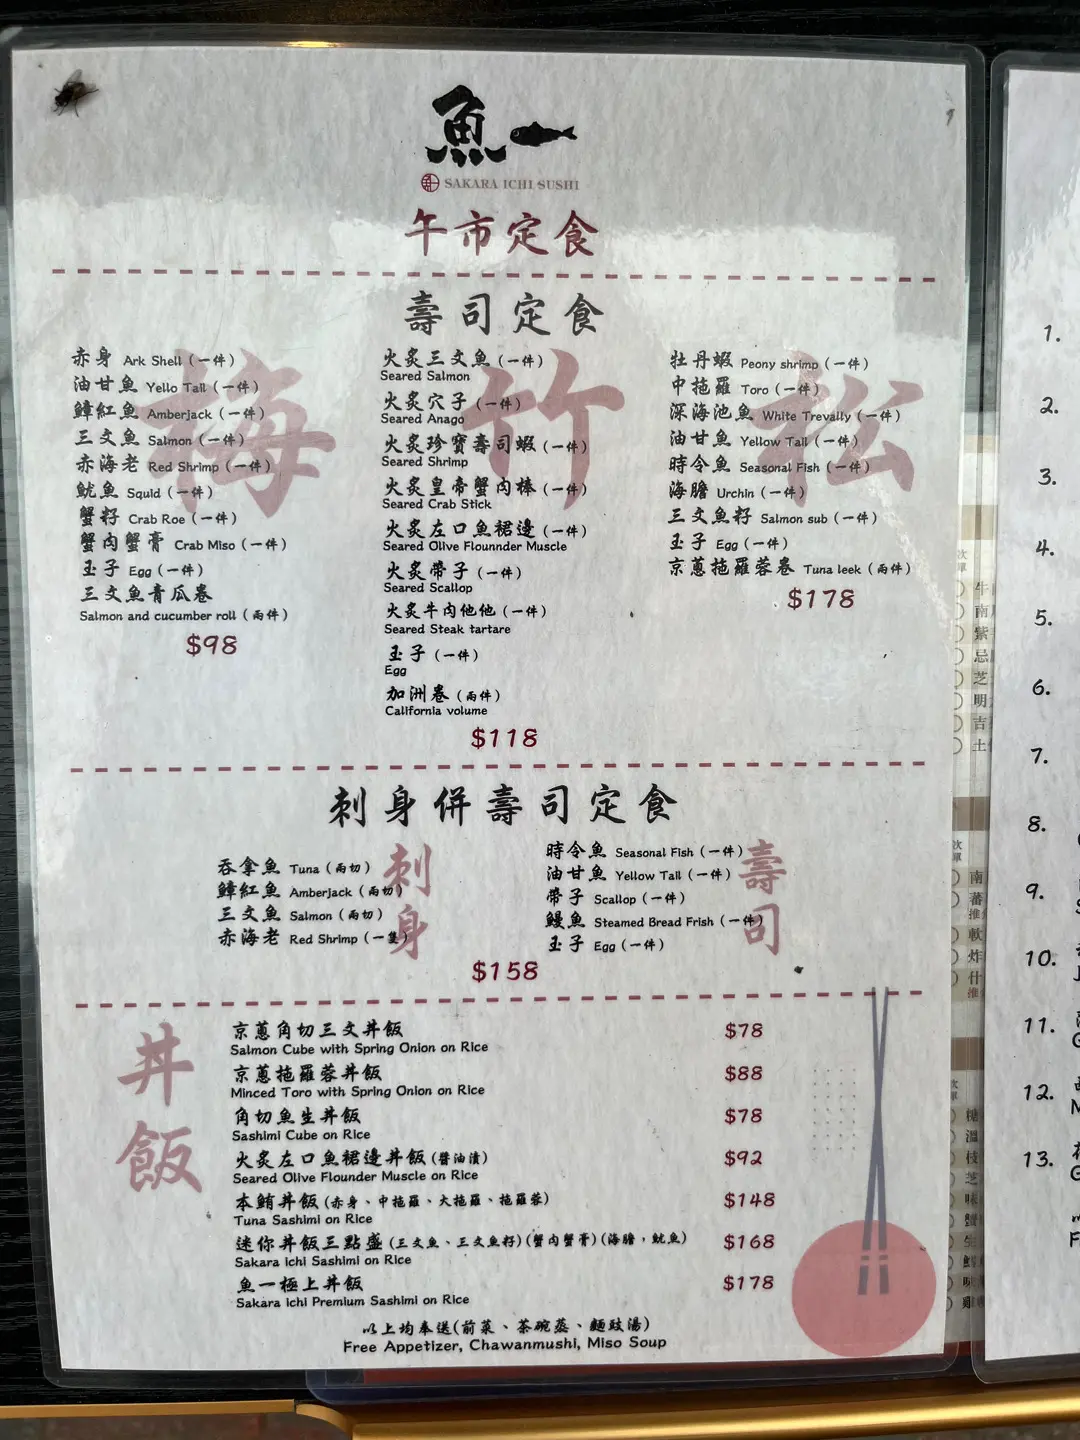 魚一
SAKARA ICHI SUSHI
午市定食
壽司定食
梅
赤身 Ark Shell (一件)
油甘魚 Yello Tail (一件)
鱆紅魚 Amberjack (一件)
三文魚 Salmon (一件)
赤海老 Red Shrimp (一件)
魷魚 Squid (一件)
蟹籽 Crab Roe (一件)
蟹肉蟹膏 Crab Miso (一件)
玉子 Egg (一件)
三文魚青瓜卷
Salmon and cucumber roll (兩件)
$98
竹
火炙三文魚 (一件)
Seared Salmon
火炙穴子 (一件)
Seared Anago
火炙珍寶壽司蝦 (一件)
Seared Shrimp
火炙皇帝蟹肉棒 (一件)
Seared Crab Stick
火炙左口魚裙邊 (一件)
Seared Olive Flounnder Muscle
火炙帶子 (一件)
Seared Scallop
火炙牛肉他他 (一件)
Seared Steak tartare
玉子 (一件)
Egg
加洲卷 (兩件)
California volume
$118
松
牡丹蝦 Peony shrimp (一件)
中拖羅 Toro (一件)
深海池魚 White Trevally (一件)
油甘魚 Yellow Tail (一件)
時令魚 Seasonal Fish (一件)
海膽 Urchin (一件)
三文魚籽 Salmon sub (一件)
玉子 Egg (一件)
京蔥拖羅蓉卷 Tuna leek (兩件)
$178
刺身併壽司定食
刺身
吞拿魚 Tuna (兩切)
鱆紅魚 Amberjack (兩切)
三文魚 Salmon (兩切)
赤海老 Red Shrimp (一隻)
壽司
時令魚 Seasonal Fish (一件)
油甘魚 Yellow Tail (一件)
帶子 Scallop (一件)
鰻魚 Steamed Bread Frish (一件)
玉子 Egg (一件)
$158
丼飯
京蔥角切三文丼飯 $78
Salmon Cube with Spring Onion on Rice
京蔥拖羅蓉丼飯 $88
Minced Toro with Spring Onion on Rice
角切魚生丼飯 $78
Sashimi Cube on Rice
火炙左口魚裙邊丼飯 (醬油漬) $92
Seared Olive Flounder Muscle on Rice
本鮪丼飯 (赤身、中拖羅、大拖羅、拖羅蓉) $148
Tuna Sashimi on Rice
迷你丼飯三點盛 (三文魚、三文魚籽) (蟹肉蟹膏) (海膽，魷魚) $168
Sakara Ichi Sashimi on Rice
魚一極上丼飯 $178
Sakara Ichi Premium Sashimi on Rice
以上均奉送 (前菜、茶碗蒸、麵豉湯)
Free Appetizer, Chawanmushi, Miso Soup
1.
2.
3.
4.
5.
6.
7.
8.
9.
10.
11.
12.
13.